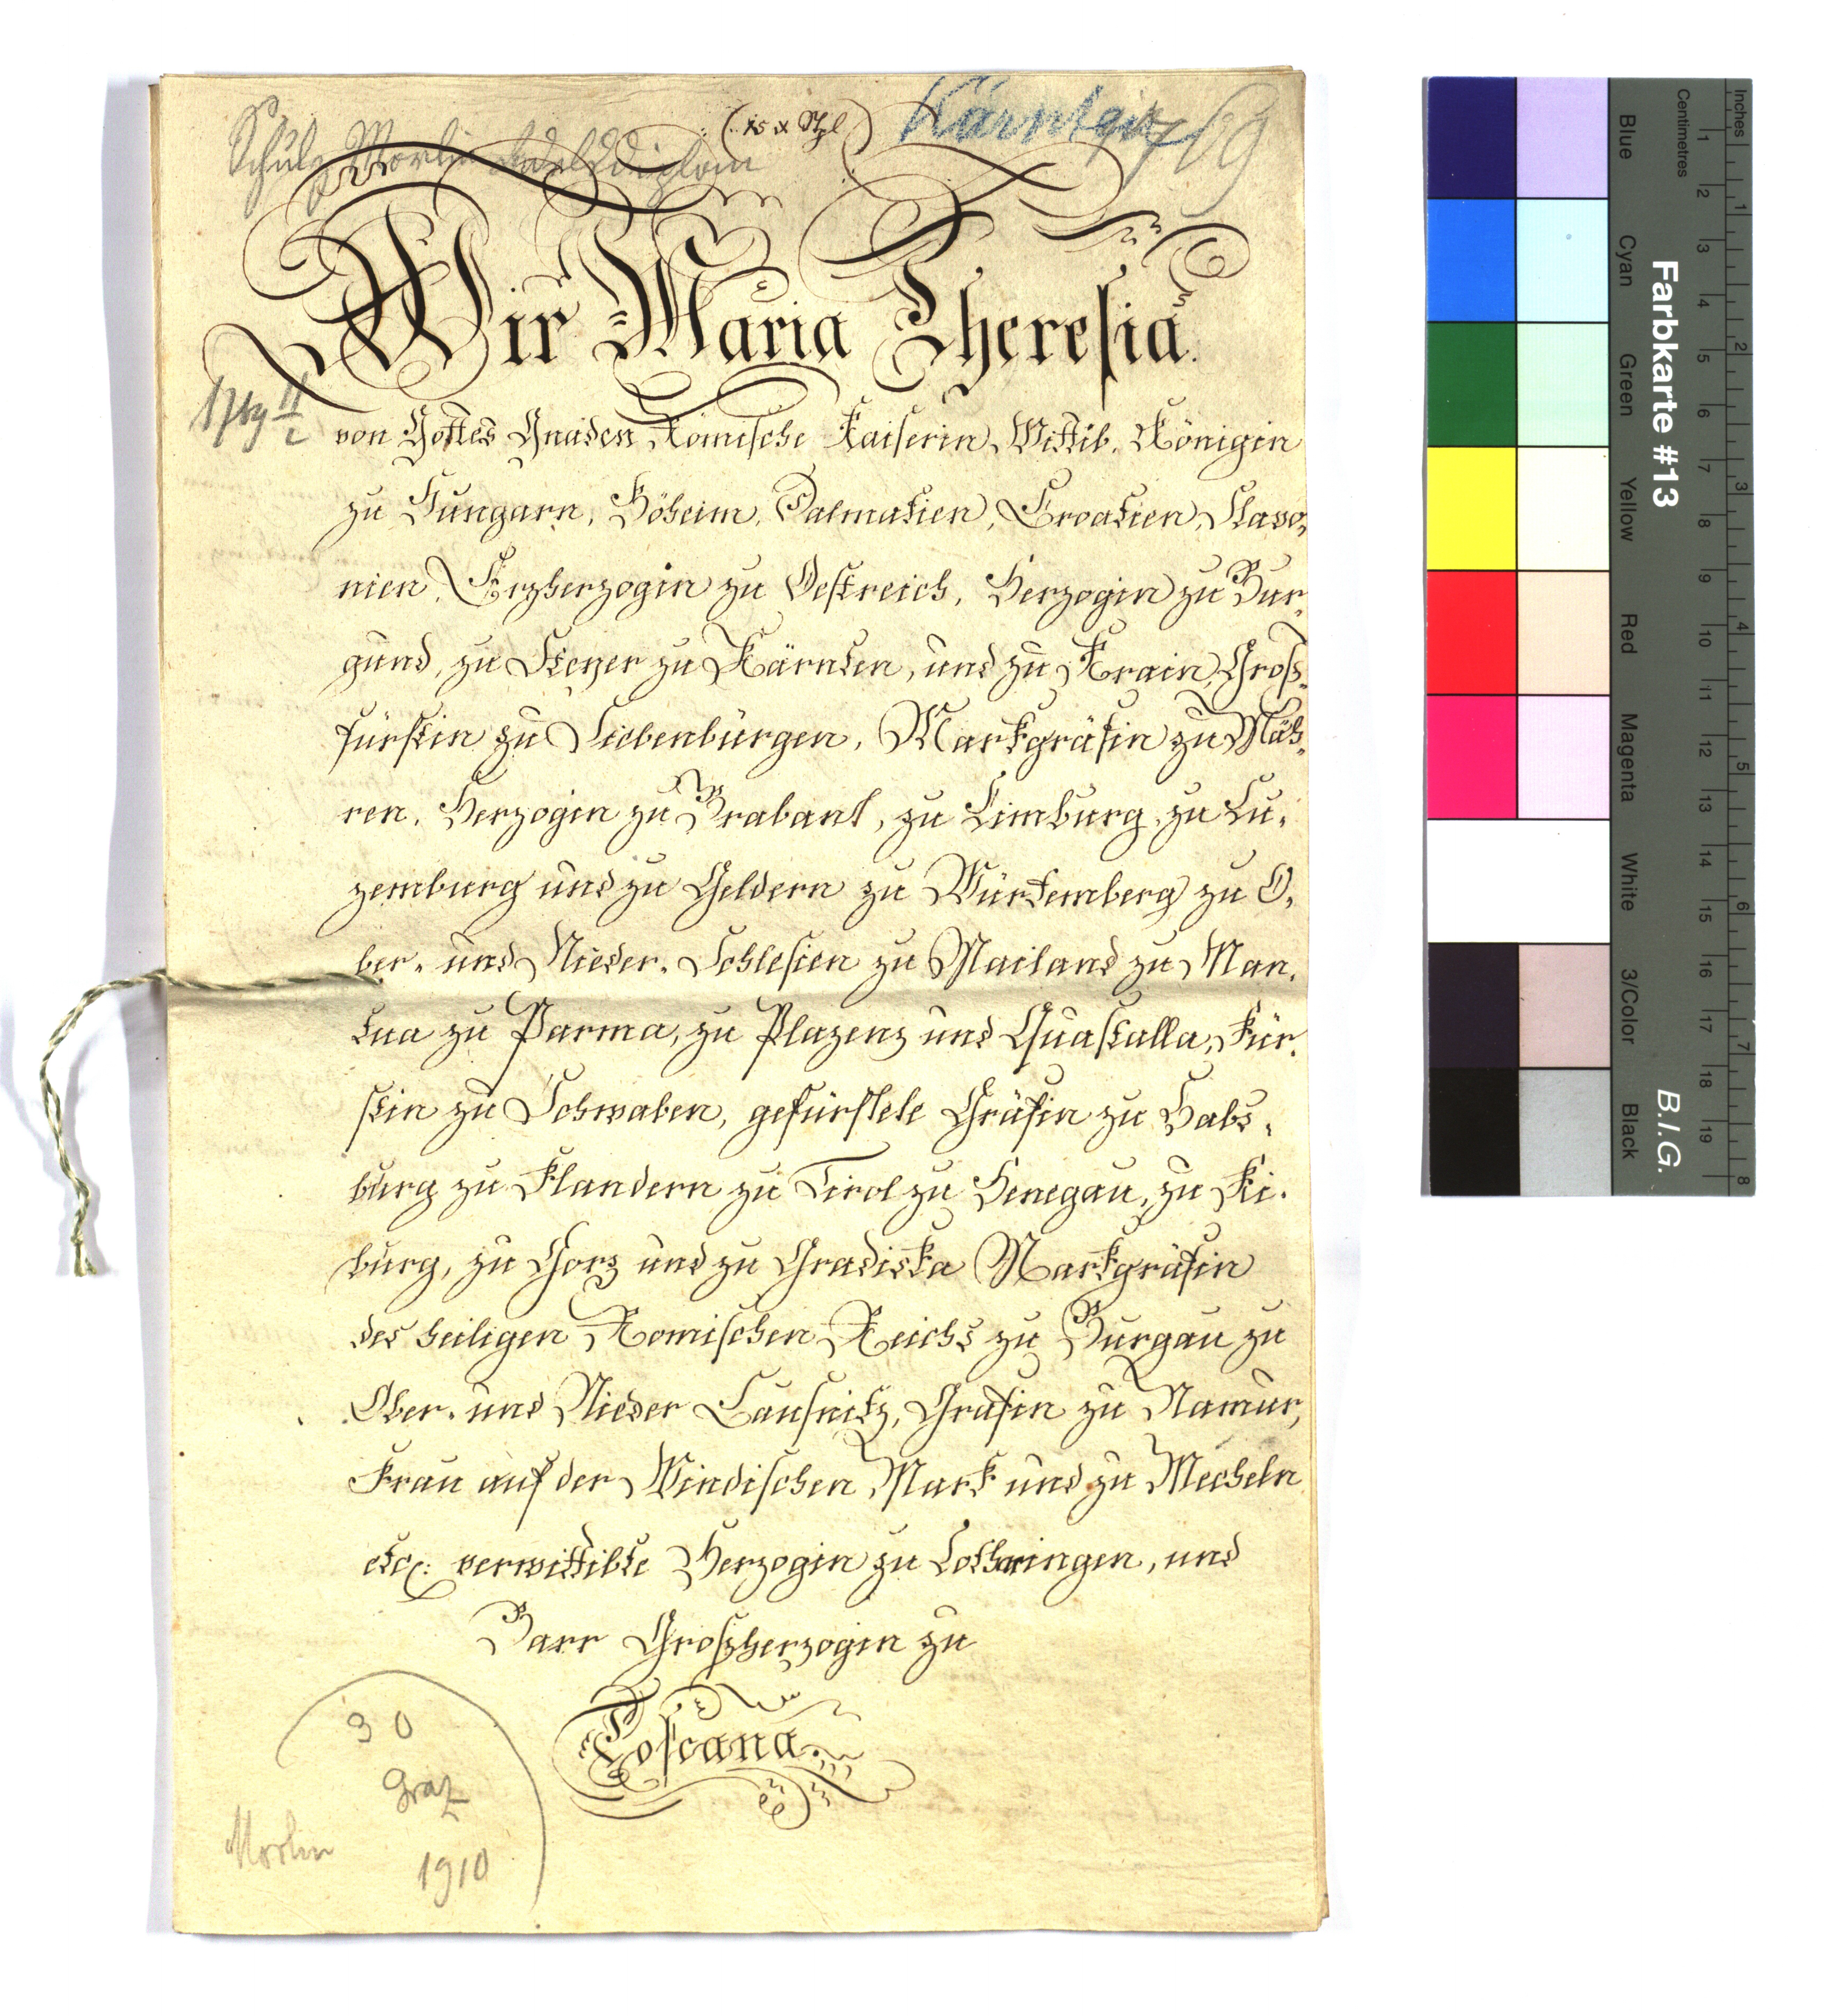 Schulz Morlin Adelsdiplom
(15 x Stpl)
Kärnten
1769
Wir Maria Theresia.
1769 II/2
von Gottes Gnaden Romische Kaiserin, Wittib, Königin
zu Hungarn, Böheim, Dalmatien, Croatien, Slavo-
nien, Erzherzogin zu Oestreich, Herzogin zu Bur-
gund, zu Steyer zu Kärnten, und zu Krain, Groß-
fürstin zu Siebenbürgen, Markgräfin zu Mäh-
ren, Herzogin zu Brabant, zu Limburg, zu Lu-
zemburg und zu Geldern zu Würtemberg zu O-
ber- und Nieder-Schlesien zu Mailand zu Man-
tua zu Parma, zu Plazenz und Quastalla, Für-
stin zu Schwaben, gefürstete Gräfin zu Habs-
burg zu Flandern zu Tirol zu Henegau, zu Ki-
burg, zu Gorz und zu Gradiska Markgräfin
des heiligen Romischen Reichs zu Burgau zu
Ober- und Nieder Lausnitz, Gräfin zu Namur,
Frau auf der Windischen Mark und zu Mecheln
etc: verwittibte Herzogin zu Lothringen, und
Barr Großherzogin zu
Toscana.
30
Graz
Morlin
1910
Farbkarte #13
B.I.G.
Inches
Centimetres
1 2 3 4 5 6 7 8 9 10 11 12 13 14 15 16 17 18 19
1 2 3 4 5 6 7 8
Blue
Cyan
Green
Yellow
Red
Magenta
White
3/Color
Black